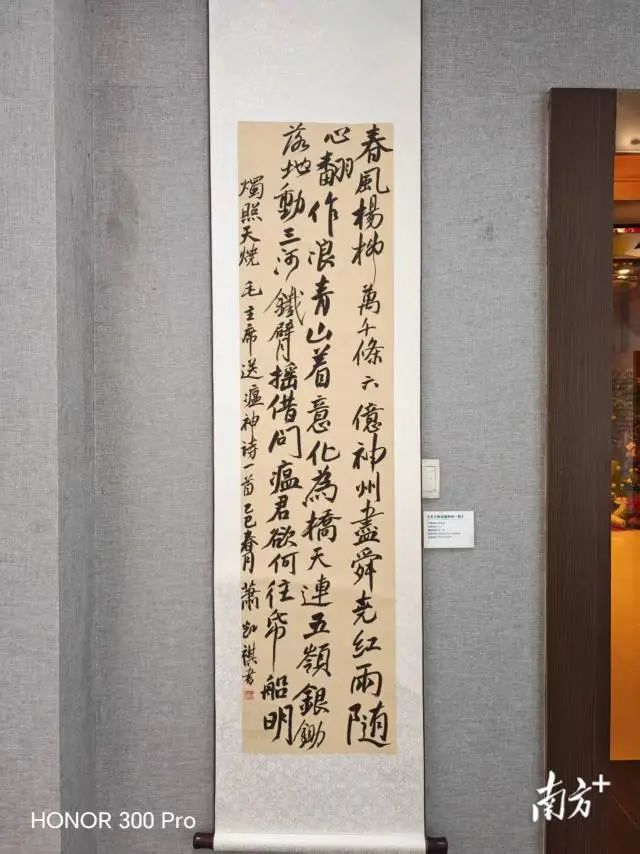 春風楊柳萬千條六億神州盡舜堯紅雨随
心翻作浪青山着意化為橋天連五嶺銀鋤
落地動三河鐵臂摇借问瘟君欲何往帋船明
燭照天燒 毛主席送瘟神诗一首 乙巳春月 蕭祺书
南方+
HONOR 300 Pro